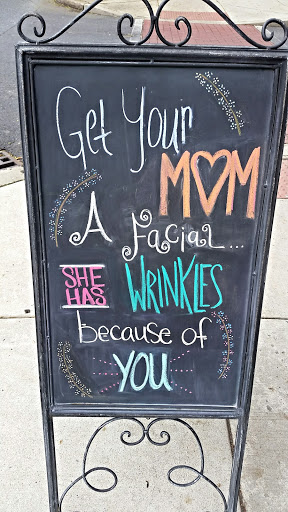 Get Your
MOM
A facial...
SHE
HAS
WRINKLES
because of
YOU